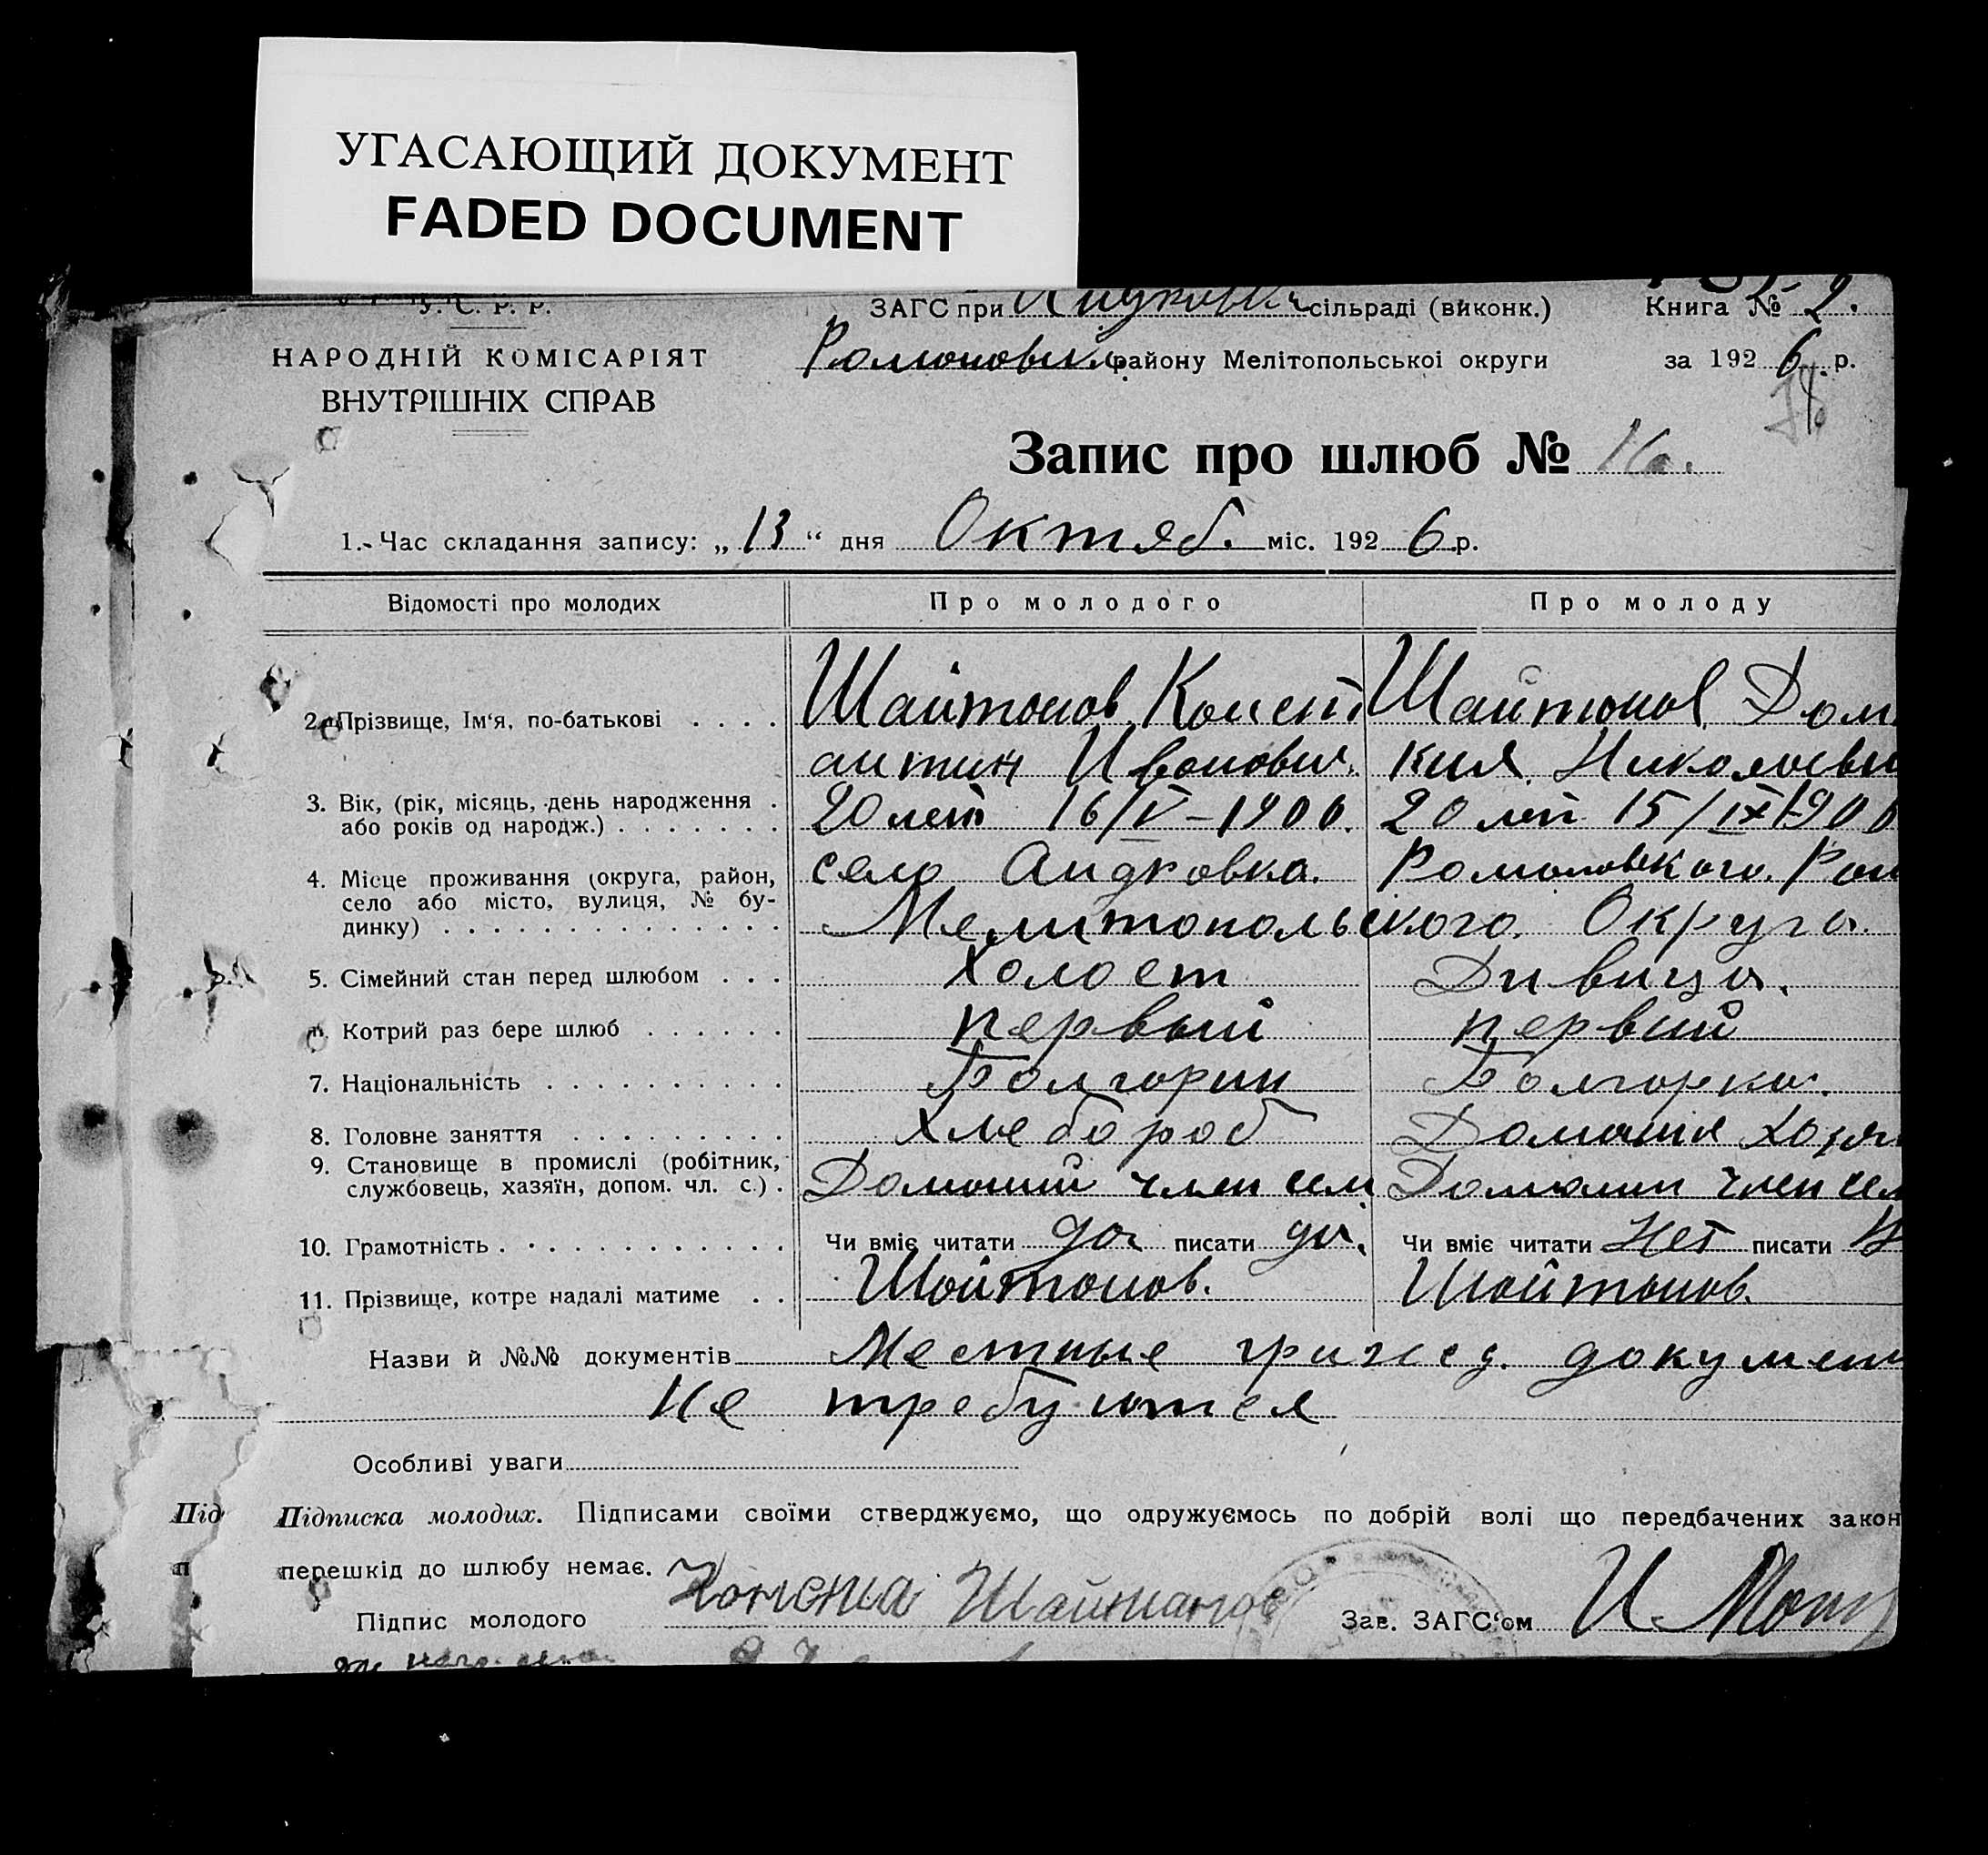 УГАСАЮЩИЙ ДОКУМЕНТ
FADED DOCUMENT
У. С. Р. Р.
ЗАГС при сільраді (виконк.) Книга № 2.
НАРОДНІЙ КОМІСАРІЯТ
Романовск. району Мелітопольської округи за 1926 р.
ВНУТРІШНІХ СПРАВ
Запис про шлюб № 16.
1. Час складання запису: „13“ дня Октяб. міс. 1926 р.
Відомості про молодих Про молодого Про молоду
2. Прізвище, Ім‘я, по-батькові . . . . Шайтанов Конст Шайтанов Дом
антин Иванович. кия Николаевн
3. Вік, (рік, місяць, день народження . 20 лет 16/IV-1906. 20 лет 15/IX 1906
або років од народж.) . . . . . . .
4. Місце проживання (округа, район, село Андровка. Романовского Рай
село або місто, вулиця, № бу-
динку) . . . . . . . . . . . . . . Мелитопольского Округа.
5. Сімейний стан перед шлюбом . . . Холост Дивица.
Котрий раз бере шлюб . . . . . . первый первый
7. Національність . . . . . . . . . . Болгарин Болгарка.
8. Головне заняття . . . . . . . . . Хлебороб Домашня хозя
9. Становище в промислі (робітник,
службовець, хазяїн, допом. чл. с.) . Домашний член сем Домашни член сем
10. Грамотність . . . . . . . . . . . . Чи вміє читати да писати да. Чи вміє читати Нет писати Н
11. Прізвище, котре надалі матиме . . Шайтанов. Шайтанов.
Назви й №№ документів Местные гражд. докумен
не требуются
Особливі уваги
Під Підписка молодих. Підписами своїми стверджуємо, що одружуємось по добрій волі що передбачених закон
п перешкід до шлюбу немає.
Підпис молодого Шайтанов Зав. ЗАГС‘ом И.